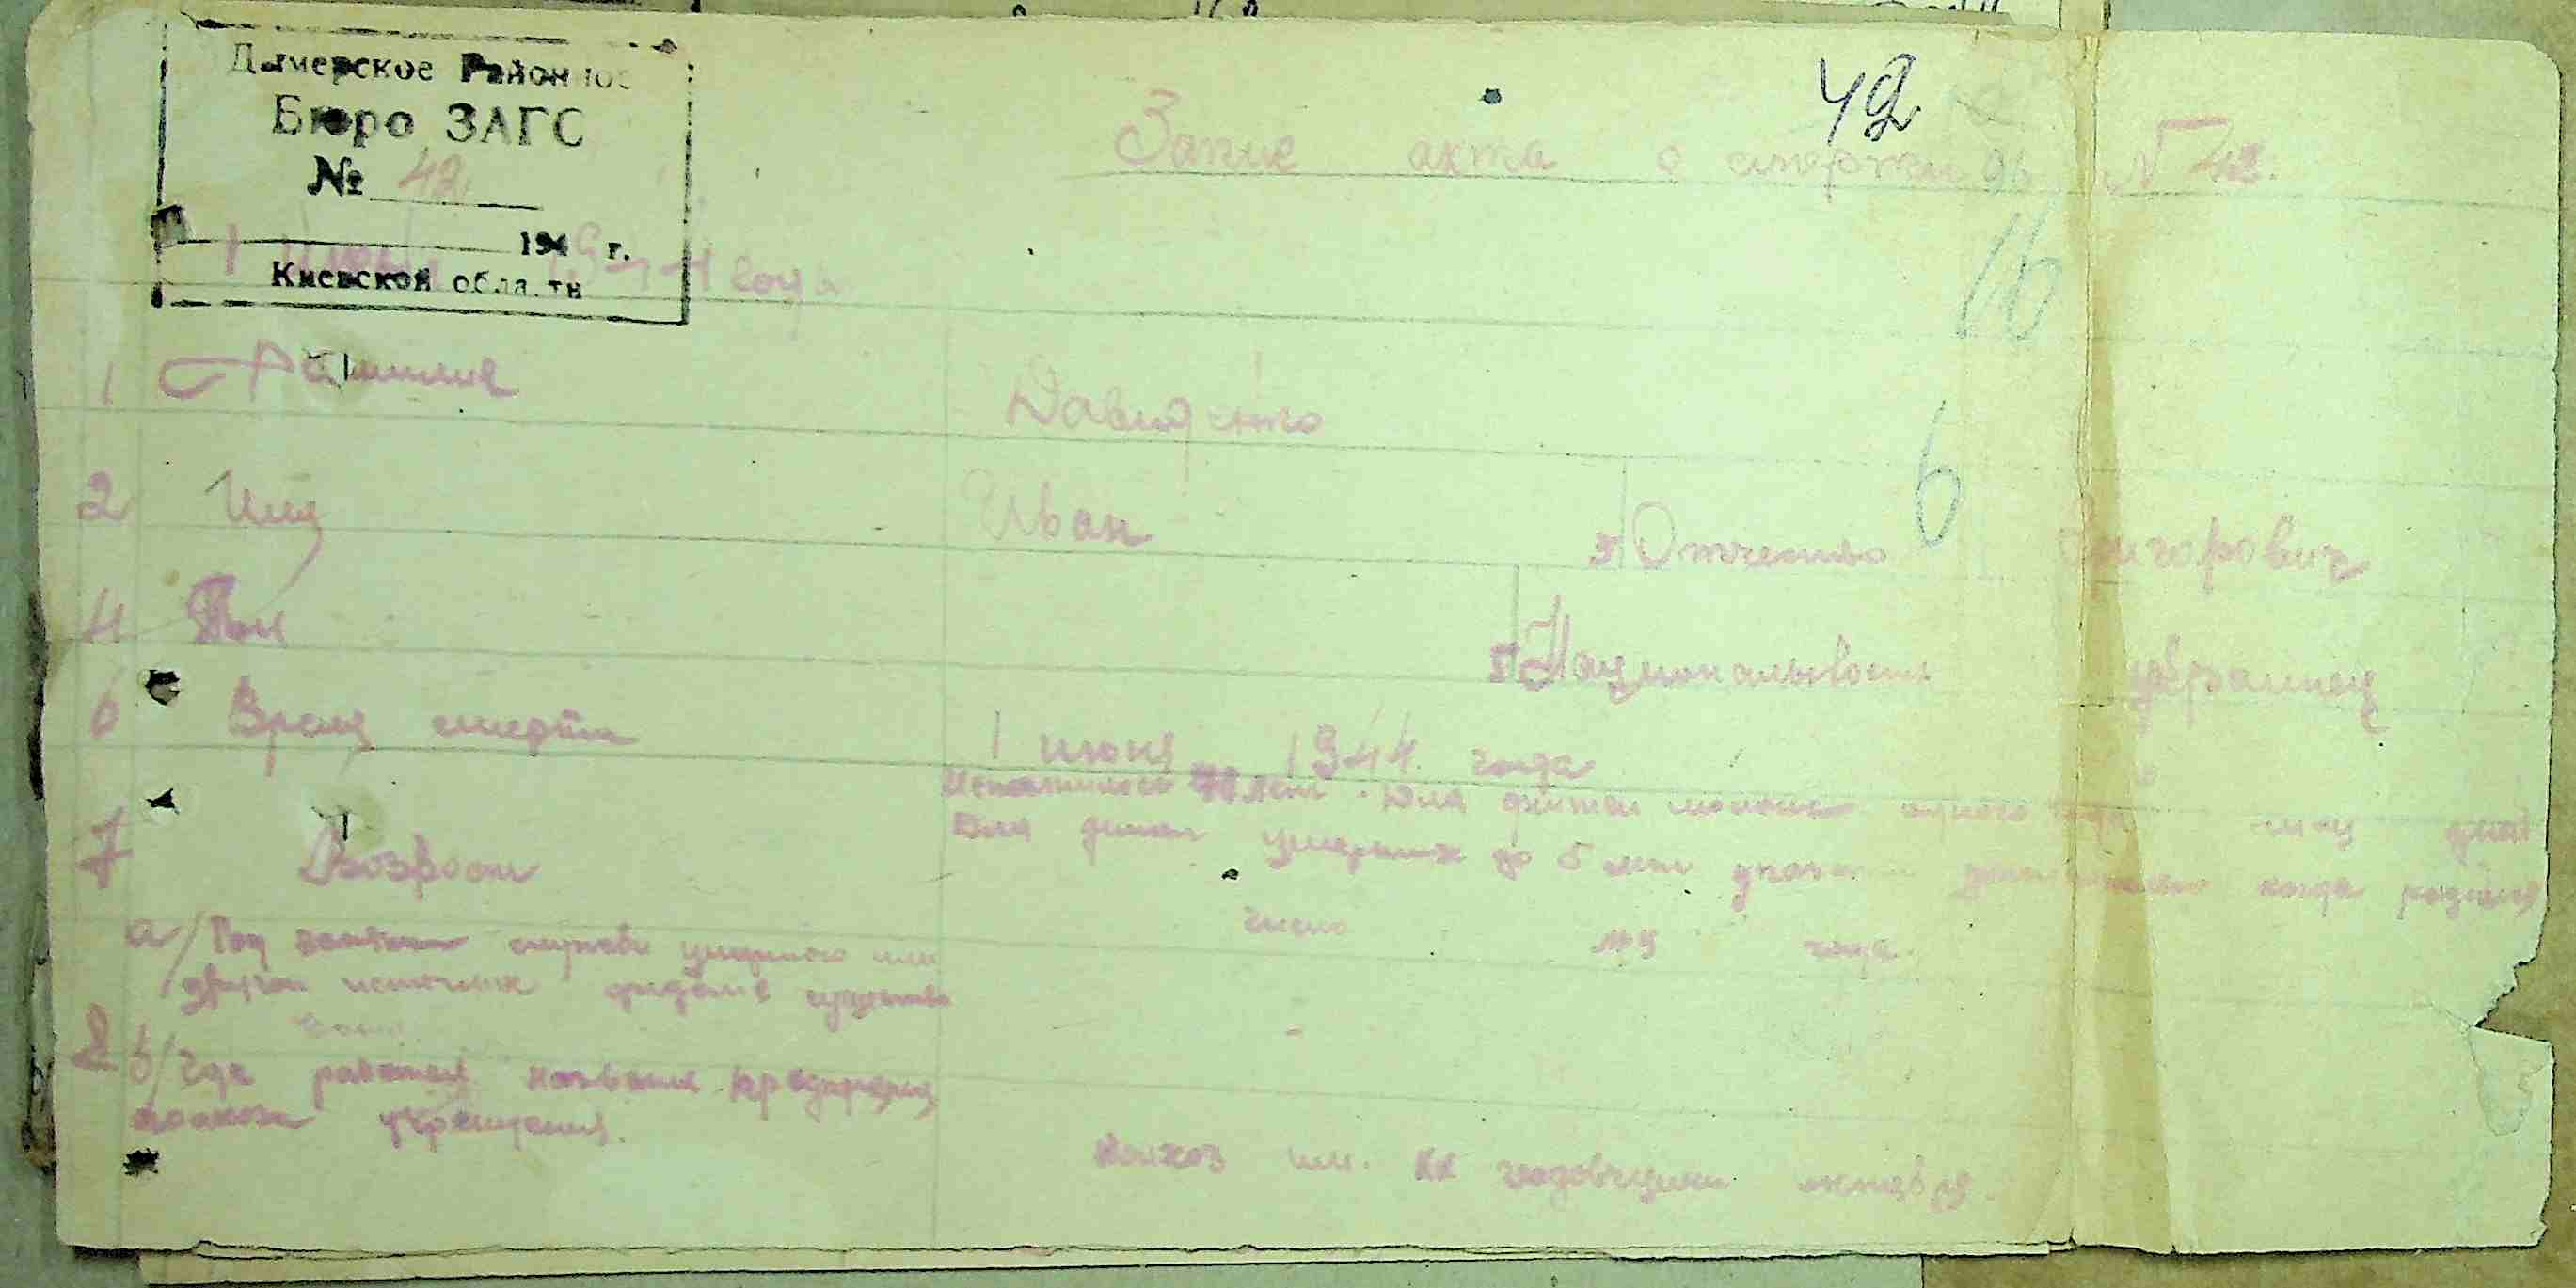 Дымерское Районное
Бюро ЗАГС
№ 42
194 г.
Киевской области
1 июня 1944 года
42
Запис акта о смерти № 42.
16
1 Фамилие Давиденко
6
2 Имя Иван 3 Отчество Григорович
4 Пол 5 Национальность украинец
6 Время смерти 1 июня 1944 года
7 Возраст Исполнилось лет. Для детей одного года мец дней
Для детей умерших до 5 лет когда родился
число мц года
а/ Род занятий службы или
другой источник существо
вани
8 б/ Где работал название предприятия
колхоза учреждения.
колхоз им. ХХ годовщины октября.